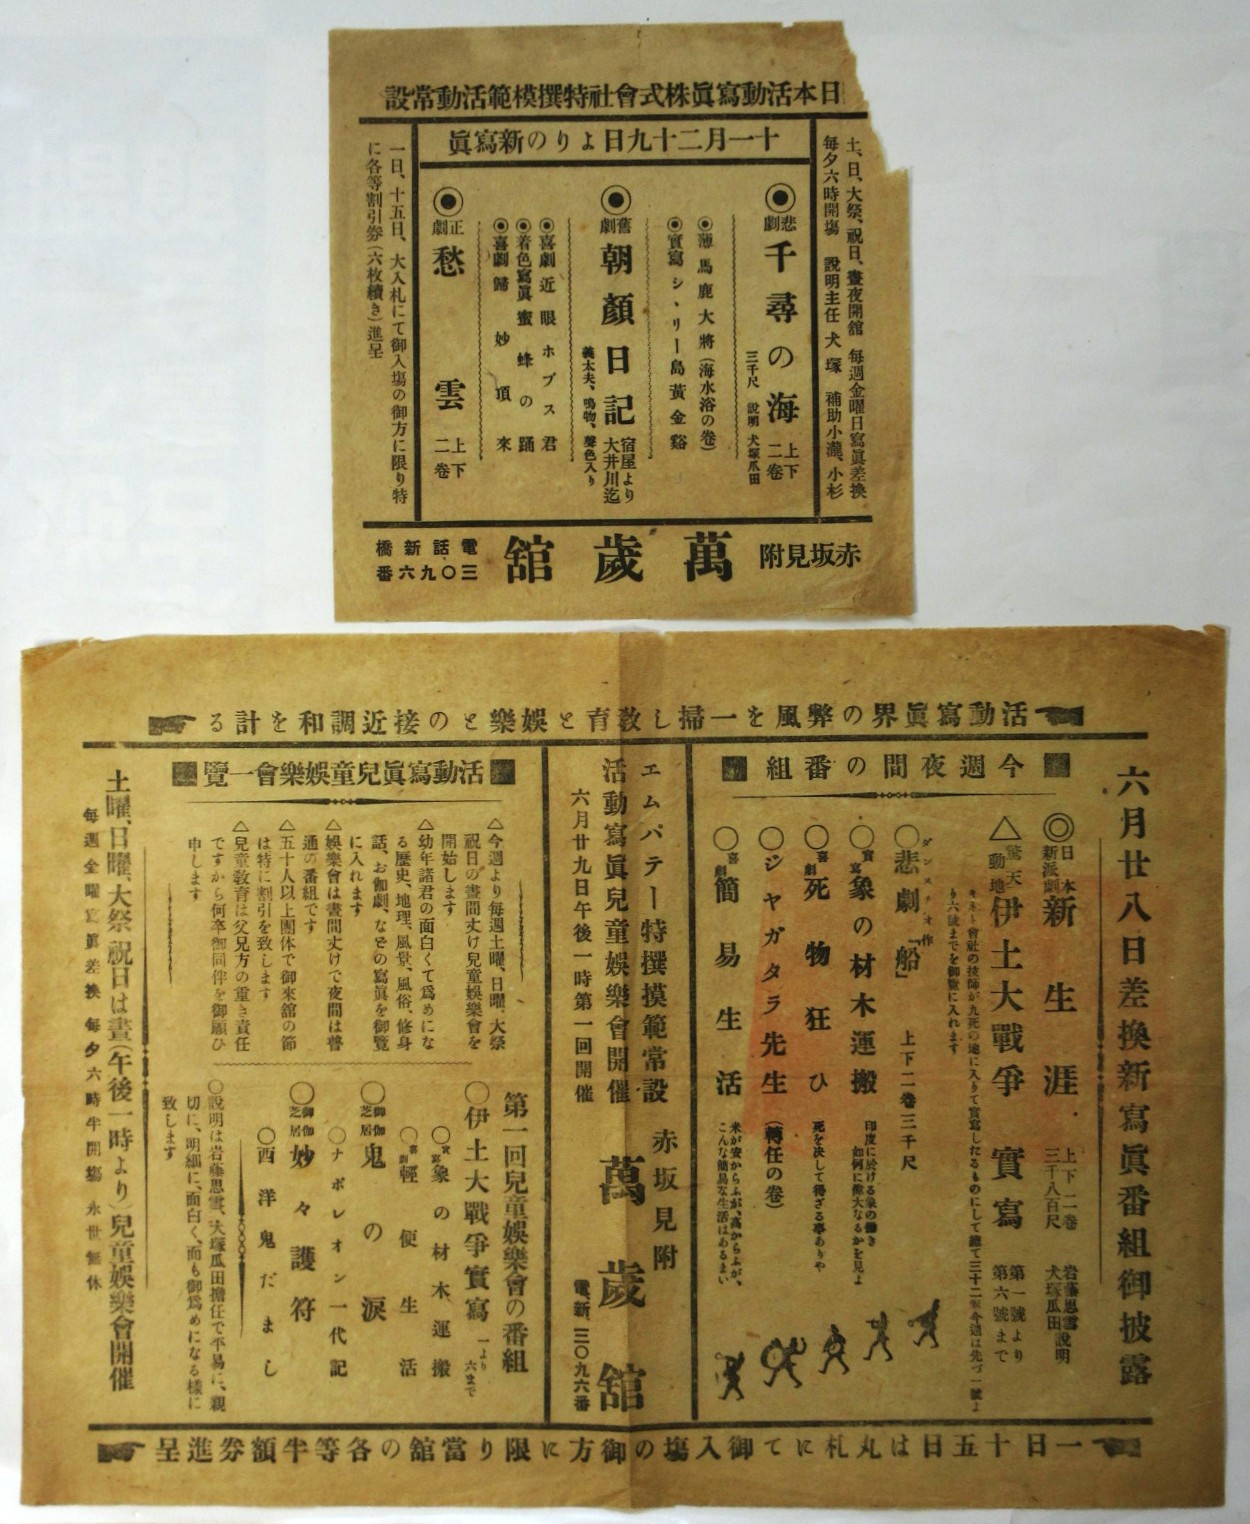 日本活動寫眞株式會社特撰模範活動常設
十一月二十九日よりの新寫眞
土、日、大祭、祝日、晝夜開舘　毎週金曜日寫眞差換
毎夕六時開塲　説明主任　犬塚　補助小瀧、小杉
◉悲劇　千尋の海　上下二卷
三千尺　説明　犬塚瓜田
◉薄馬鹿大將(海水浴の卷)
◉實寫シヽリー島黃金谿
◉舊劇　朝顏日記　宿屋より大井川迄
義太夫、鳴物、聲色入り
◉喜劇近眼ホブス君
◉着色寫眞蜜蜂の踊
◉喜劇歸妙頂來
◉正劇　愁雲　上下二卷
一日、十五日、大入札にて御入塲の御方に限り特
に各等割引劵(六枚續き)進呈
赤坂見附　萬歲舘　電話新橋三〇九六番
活動寫眞界の弊風を一掃し敎育と娛樂との接近調和を計る
六月廿八日差換新寫眞番組御披露
今週夜間の番組
◎日本新派劇　新生涯　上下二卷三千八百尺　岩藤思雪犬塚瓜田説明
△驚天動地　伊土大戰爭實寫　第一號より第六號まで
キネト會社の技師が九死の地に入りて實寫したるものにして總て三十二號今週は先づ一號よ
り六號までを御覽に入れます
ダンスチオ作
○悲劇「船」　上下二卷三千尺
○實寫　象の材木運搬　印度に於ける象の働き如何に偉大なるかを見よ
○喜劇　死物狂ひ　死を決して得ざる事ありや
○ジヤガタラ先生(轉任の卷)
○喜劇　簡易生活　米が安からふが、高からふが、こんな簡易な生活はあるまい
エムパテー特撰摸範常設　赤坂見附
活動寫眞兒童娛樂會開催　萬歲舘
六月廿九日午後一時第一回開催　電、新、三〇九六番
活動寫眞兒童娛樂會一覽
△今週より每週土曜、日曜、大祭
祝日の晝間丈け兒童娛樂會を
開始します
△幼年諸君の面白くて爲めにな
る歷史、地理、風景、風俗、修身
話、お伽劇、などの寫眞を御覽
に入れます
△娛樂會は晝間丈けで夜間は普
通の番組です
△五十人以上團休で御來舘の節
は特に割引を致します
△兒童敎育は父兄方の重き責任
ですから何卒御同伴を御願ひ
申します
第一回兒童娛樂會の番組
○伊土大戰爭實寫　一より六まで
○實寫　象の材木運搬
○喜劇　輕便生活
○御伽芝居　鬼の淚
○ナポレオン一代記
○御伽芝居　妙々護符
○西洋鬼だまし
○説明は岩藤思雪、犬塚瓜田擔任で平易に、親
切に、明細に、面白く、而も御爲めになる樣に
致します
土曜、日曜、大祭祝日は晝(午後一時より)兒童娛樂會開催
每週金曜寫眞差換　每夕六時半開塲　永世無休
一日十五日は丸札にて御入塲の御方に限り當舘の各等半額劵進呈